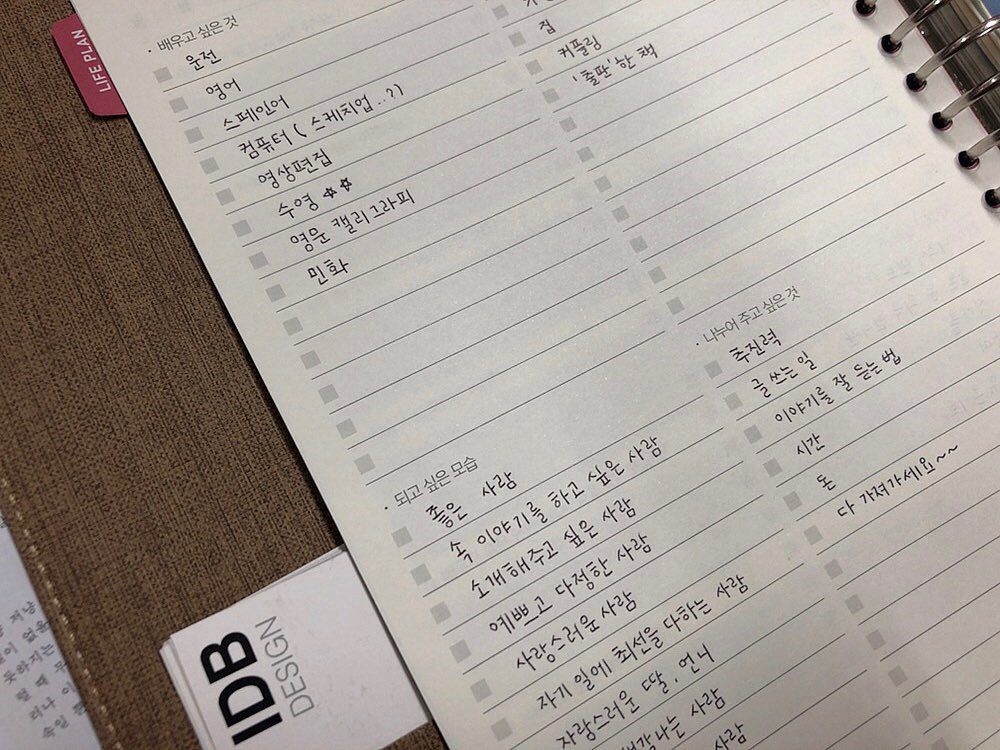 LIFE PLAN
· 배우고 싶은 것
운전
영어
스페인어
컴퓨터 ( 스케치업 ..?)
영상편집
수영 ☆☆
영문 캘리그라피
민화
집
커플링
'출판'한 책
· 되고 싶은 모습
좋은 사람
속 이야기를 하고 싶은 사람
소개해주고 싶은 사람
예쁘고 다정한 사람
사랑스러운 사람
자기 일에 최선을 다하는 사람
자랑스러운 딸, 언니
생각나는 사람
사람
· 나누어 주고 싶은 것
추진력
글 쓰는 일
이야기를 잘 듣는 법
시간
돈
다 가져가세요~~
IDB
DESIGN
못하지는
럴 때 무
러나 이
속일